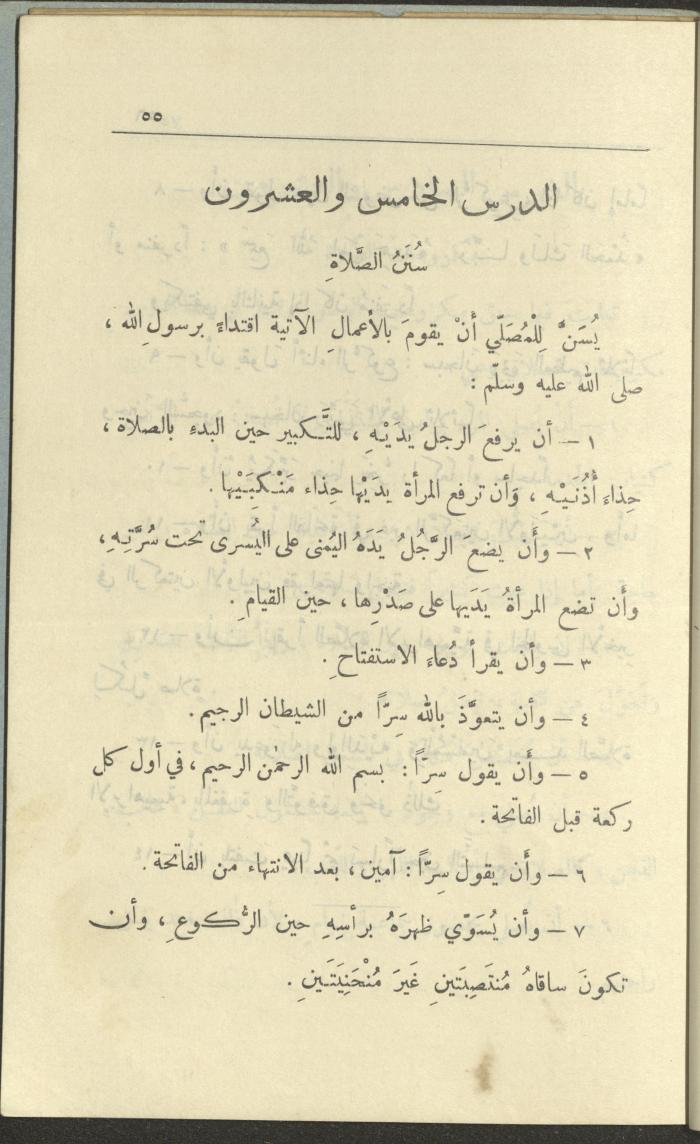 ٥٥
الدرس الخامس والعشرون
سُنَنُ الصَّلاةِ
يُسَنُّ لِلْمُصَلّي أَنْ يقومَ بالأعمالِ الآتية اقتداءً برسولِ الله ،
صلى الله عليه وسلّم :
١ – أن يرفعَ الرجلُ يدَيْهِ ، للتَّكبير حين البدءِ بالصلاة ،
حِذاءَ أُذُنَيْهِ ، وَأن ترفع المرأة يدَيْها حِذاء مَنْكِبَيْها .
٢ – وأَن يضعَ الرَّجُلُ يَدَهُ اليُمنى على اليُسرى تحت سُرَّتِهِ ،
وأَن تضع المرأةُ يَدَيها على صَدْرِها ، حين القيامِ .
٣ – وأن يقرأ دُعاءَ الاستفتاحِ .
٤ – وأن يتعوَّذَ بالله سِرّاً من الشيطان الرجيم .
٥ – وأَن يقول سِرّاً : بسم الله الرحمٰن الرحيم ، في أول كل
ركعة قبل الفاتحة .
٦ – وأَن يقول سِرّاً : آمين ، بعد الانتهاء من الفاتحة .
٧ – وأن يُسَوّي ظهرَهُ برأسِهِ حين الرُّكوعِ ، وأن
تكونَ ساقاهُ مُنتَصِبَتَينِ غَيرَ مُنْحَنِيَتَينِ .